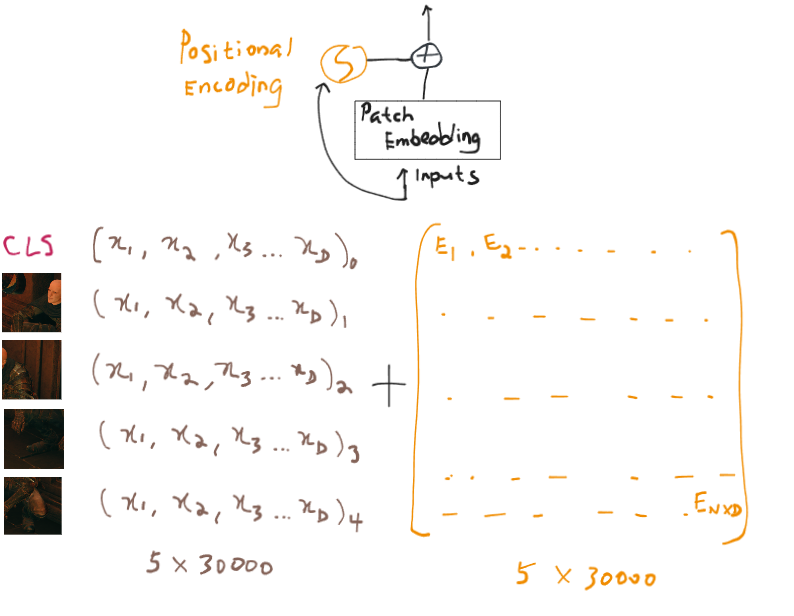 Positional
Encoding
S
+
Patch
Embedding
Inputs
CLS
[x₁, x₂, x₃ ... x_D)₀
(x₁, x₂, x₃ ... x_D)₁
(x₁, x₂, x₃ ... x_D)₂
+
(x₁, x₂, x₃ ... x_D)₃
(x₁, x₂, x₃ ... x_D)₄
5 × 30000
E₁, E₂ - . . . - - .
. - - - - - .
. - - - - -
. . - - - - -
- - - - - . E_NXD
5 × 30000